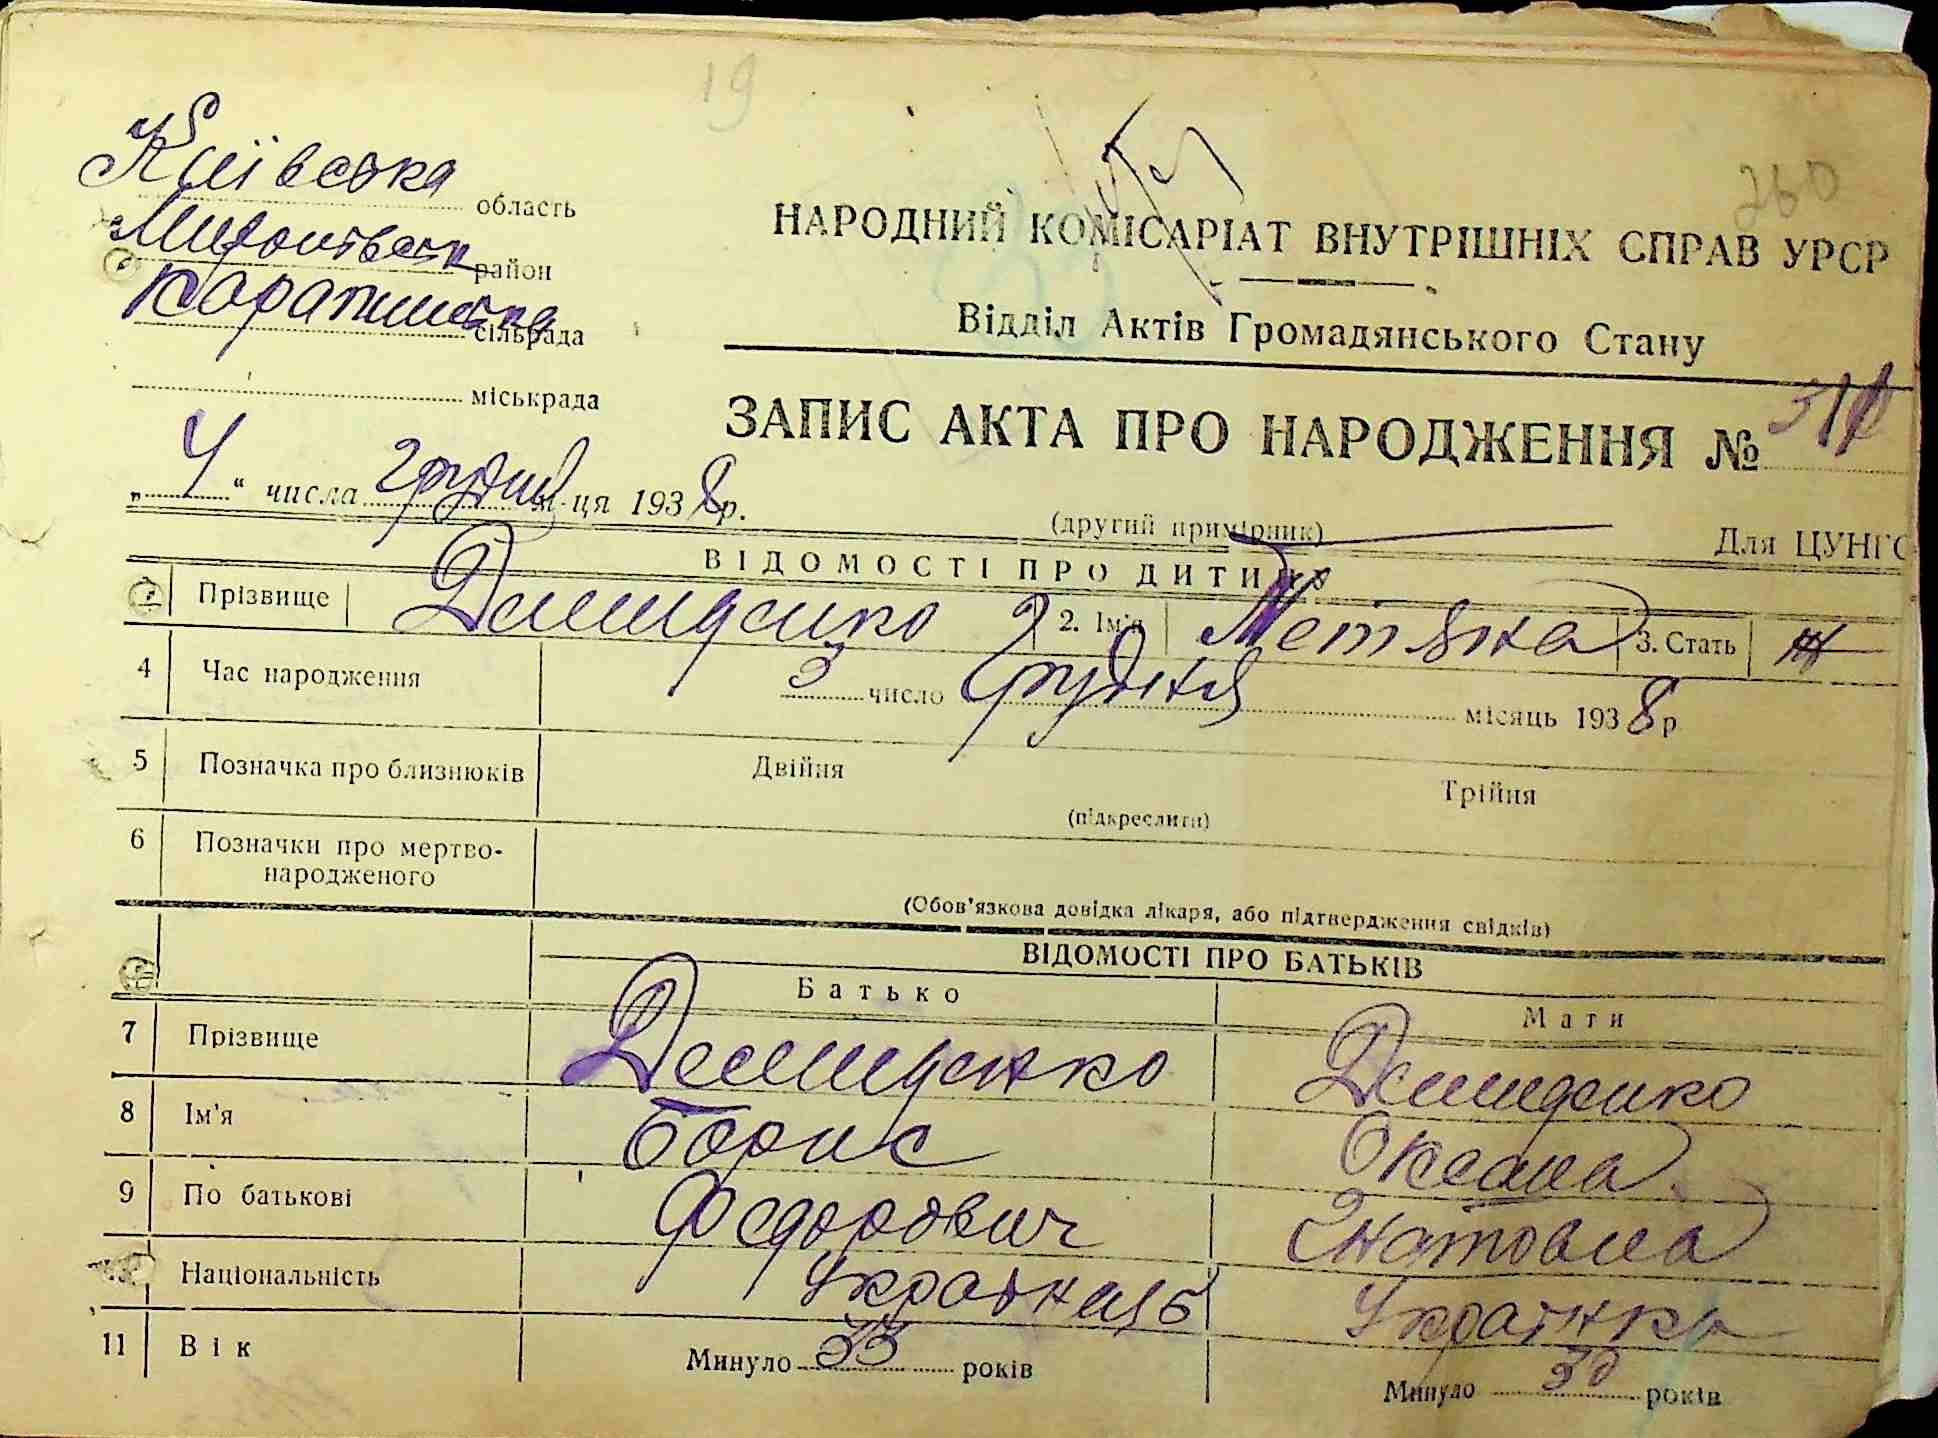 19
260
Київська область
Миронівськ район
Карапишська сільрада
міськрада
НАРОДНИЙ КОМІСАРІАТ ВНУТРІШНІХ СПРАВ УРСР
Відділ Актів Громадянського Стану
ЗАПИС АКТА ПРО НАРОДЖЕННЯ №
„4“ числа грудня м-ця 1938 р.
(другий примірник)
Для ЦУНГО
ВІДОМОСТІ ПРО ДИТИНУ
1 Прізвище Демиденко 2. Ім'я Тетяна 3. Стать ж
4 Час народження 3 число Грудня місяць 1938 р
5 Позначка про близнюків Двійня Трійня
(підкреслити)
6 Позначки про мертво-
народженого
(Обов'язкова довідка лікаря, або підтвердження свідків)
ВІДОМОСТІ ПРО БАТЬКІВ
Батько Мати
7 Прізвище Демиденко Демиденко
8 Ім'я Борис Оксана
9 По батькові Федорович Гнатовна
Національність Українець Українка
11 Вік Минуло 33 років Минуло 30 років